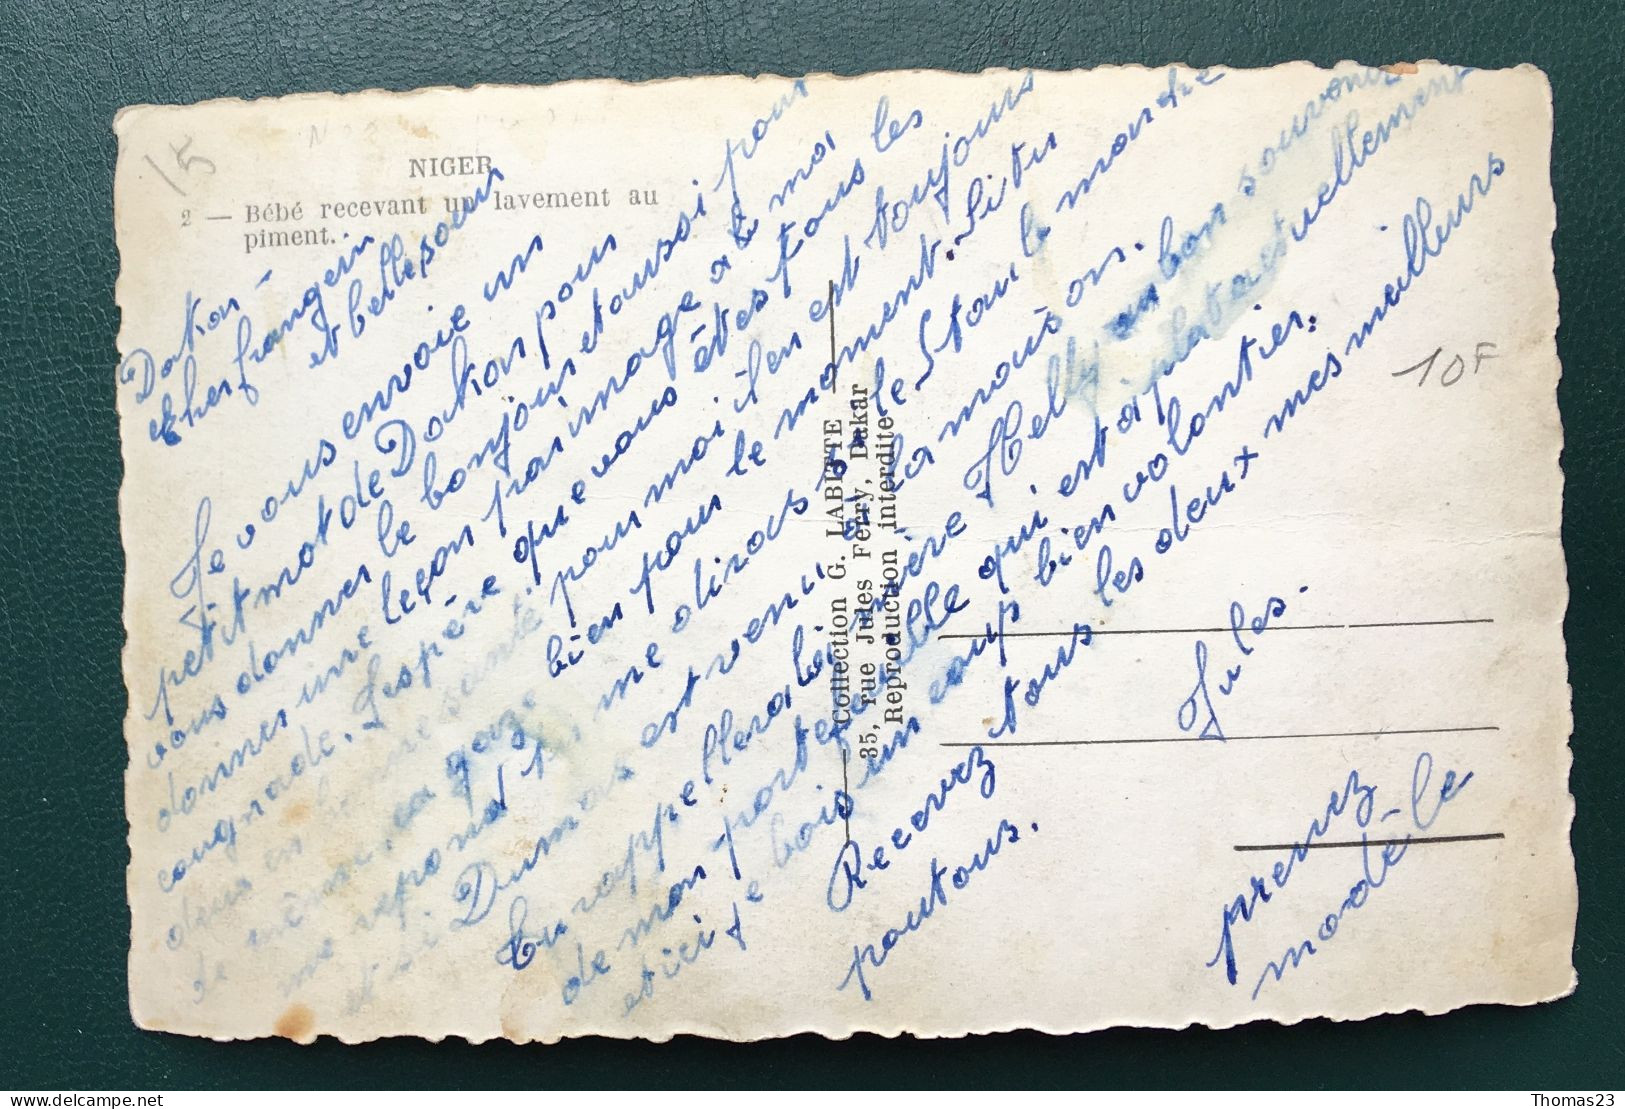 15
NIGER
2 — Bébé recevant un lavement au
piment.
Dakon -
Cher frangin
et belle sœur
Je vous envoie un
petit mot de Dakon pour
vous donner le bonjour et aussi pour
donner une leçon parrinage a te moi
cougnade. J'espère que vous êtes tous les
deux en bonne santé. pour moi il en est toujours
de même. ca gaze bien pour le moment. Si tu
me repond tu me diras le
et si Dumas est venu a la maison.
Tu rappellera bière Helly au bon souvenir
de mon portefeuille qui est a plat actuellement
et ici je bois un coup bien volontier.
Recevez tous les deux mes meilleurs
poutous.
Jules.
prenez
modèle
10F
Collection G. LABITTE
35, rue Jules Ferry, Dakar
Reproduction interdite
Thomas23